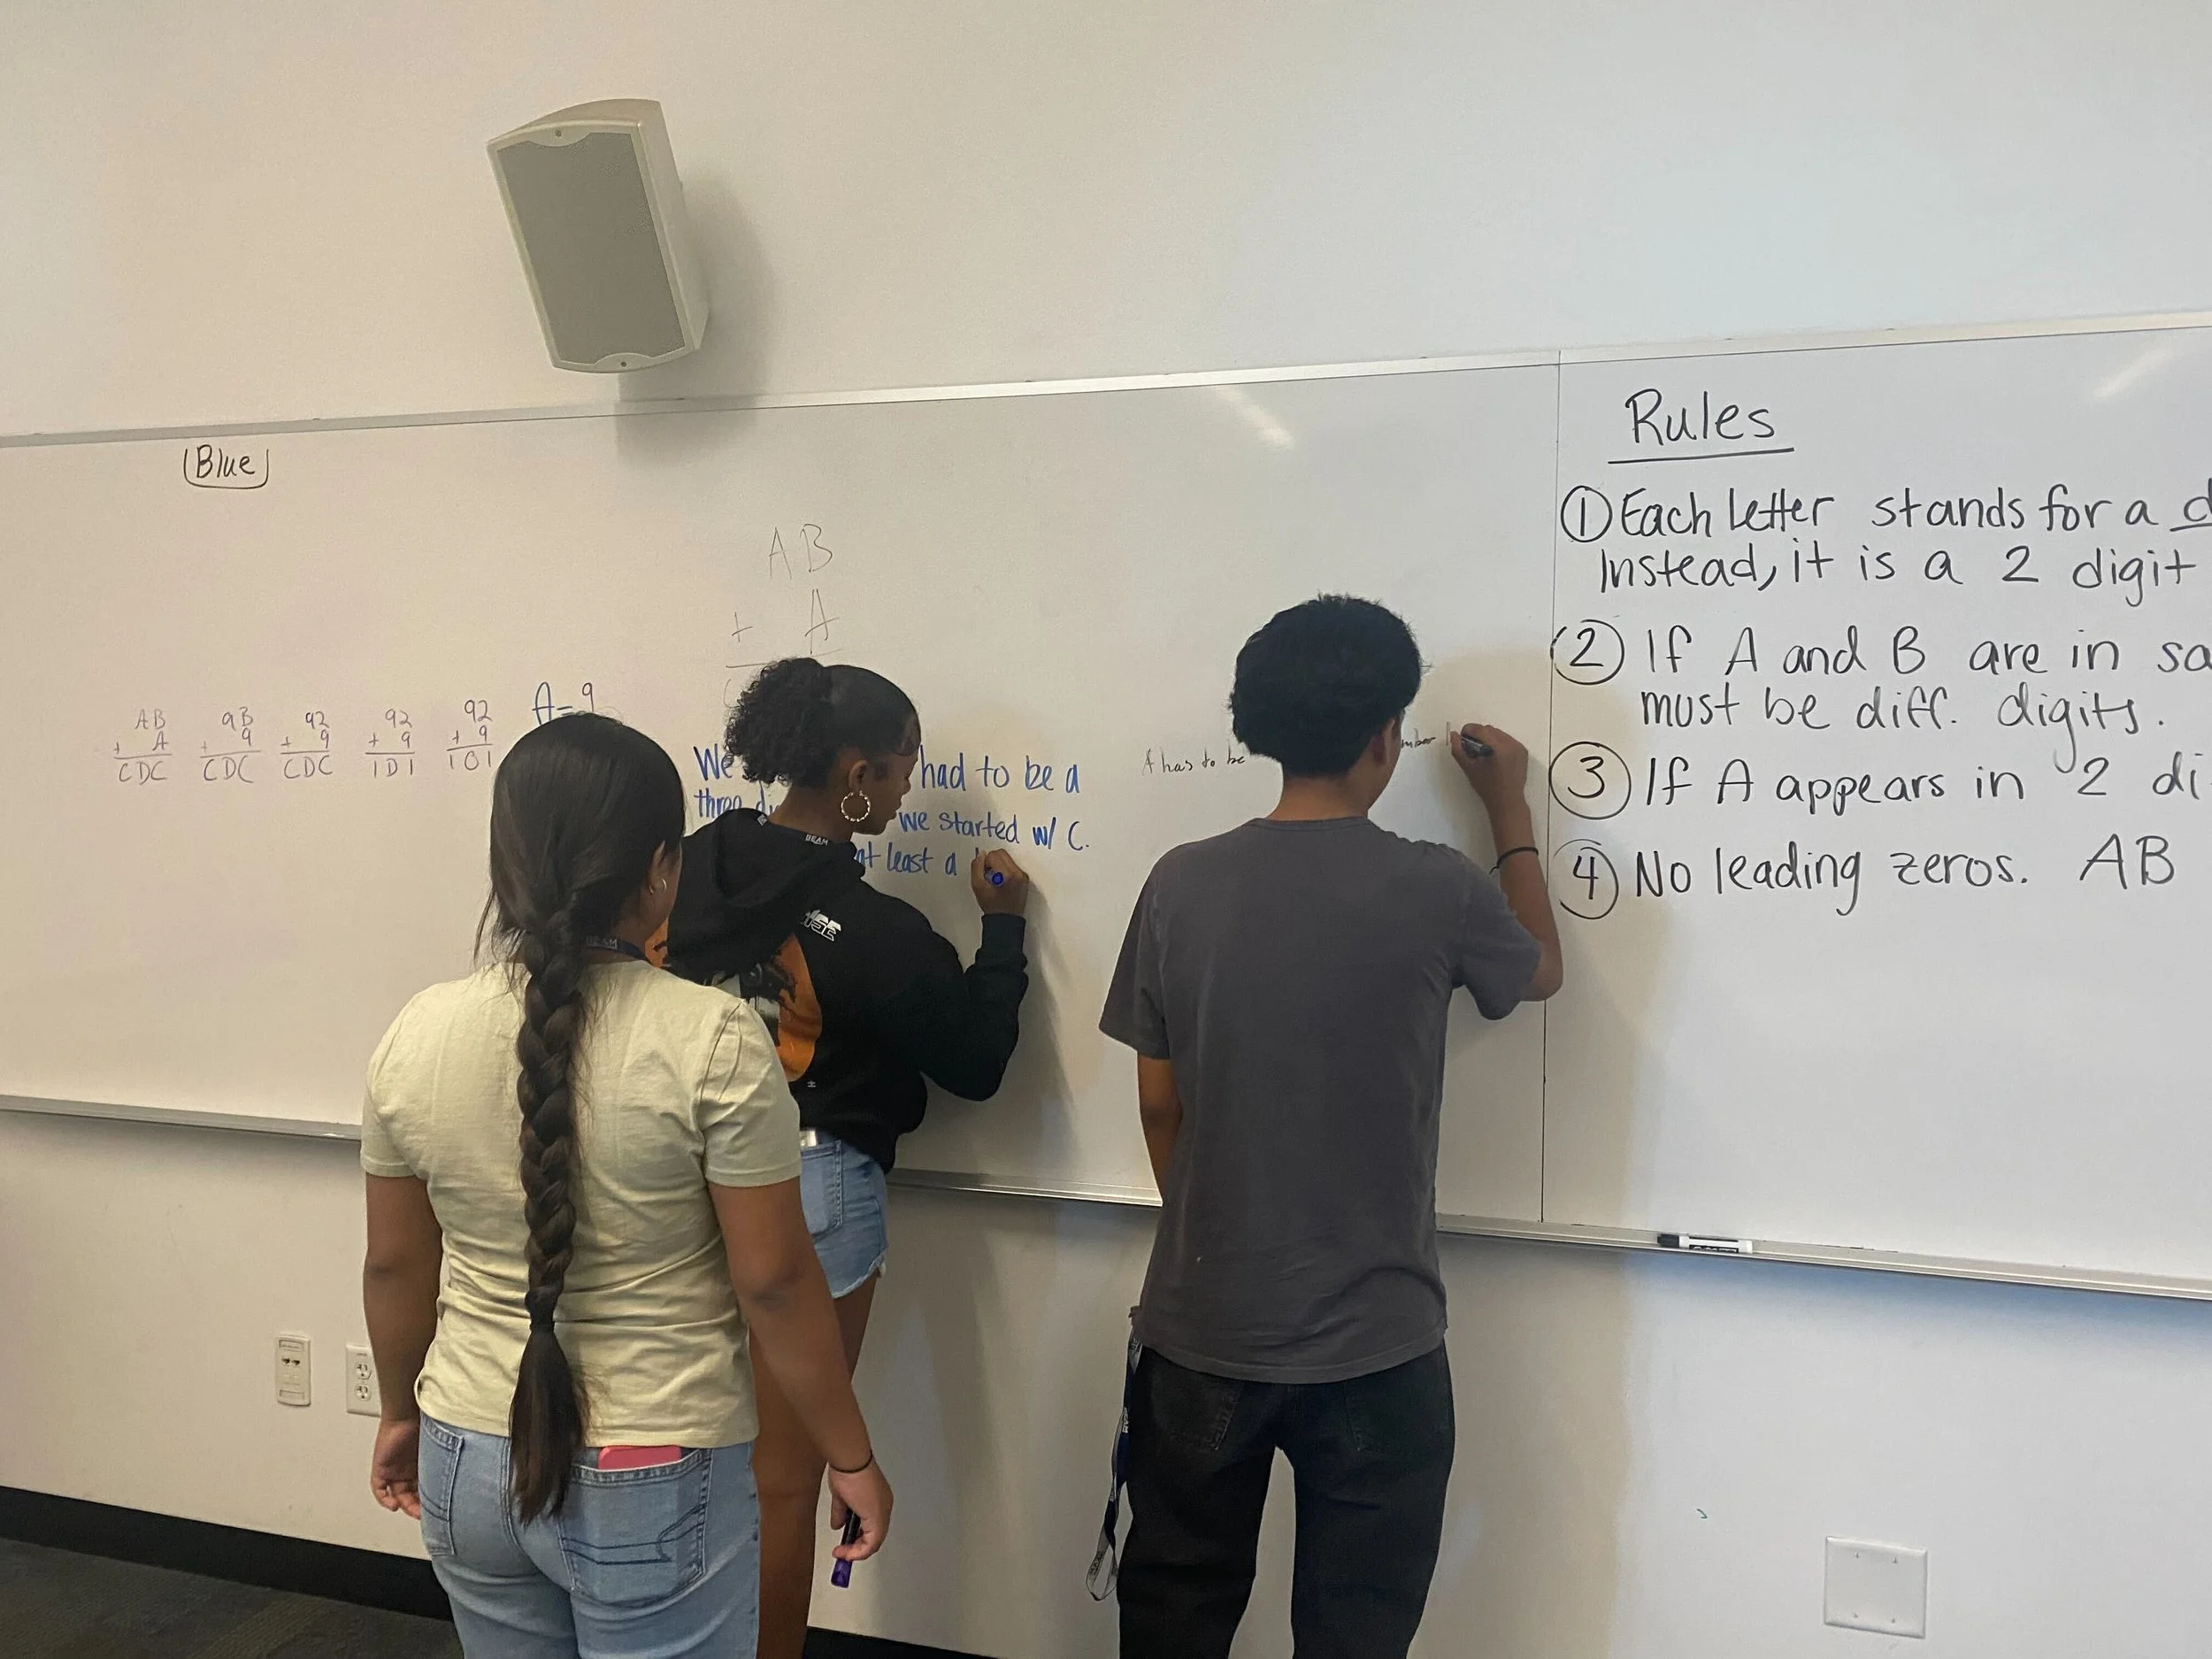 Blue
AB
+ A
C
AB
+ A
CDC
9B
+ 9
CDC
92
+ 9
CDC
92
+ 9
1D1
92
+ 9
101
A=9
We had to be a
three di we started w/ C.
at least a
A has to be mber
BEAM
Rules
① Each letter stands for a d
Instead, it is a 2 digit
② If A and B are in sa
must be diff. digits.
③ If A appears in 2 di
④ No leading zeros. AB